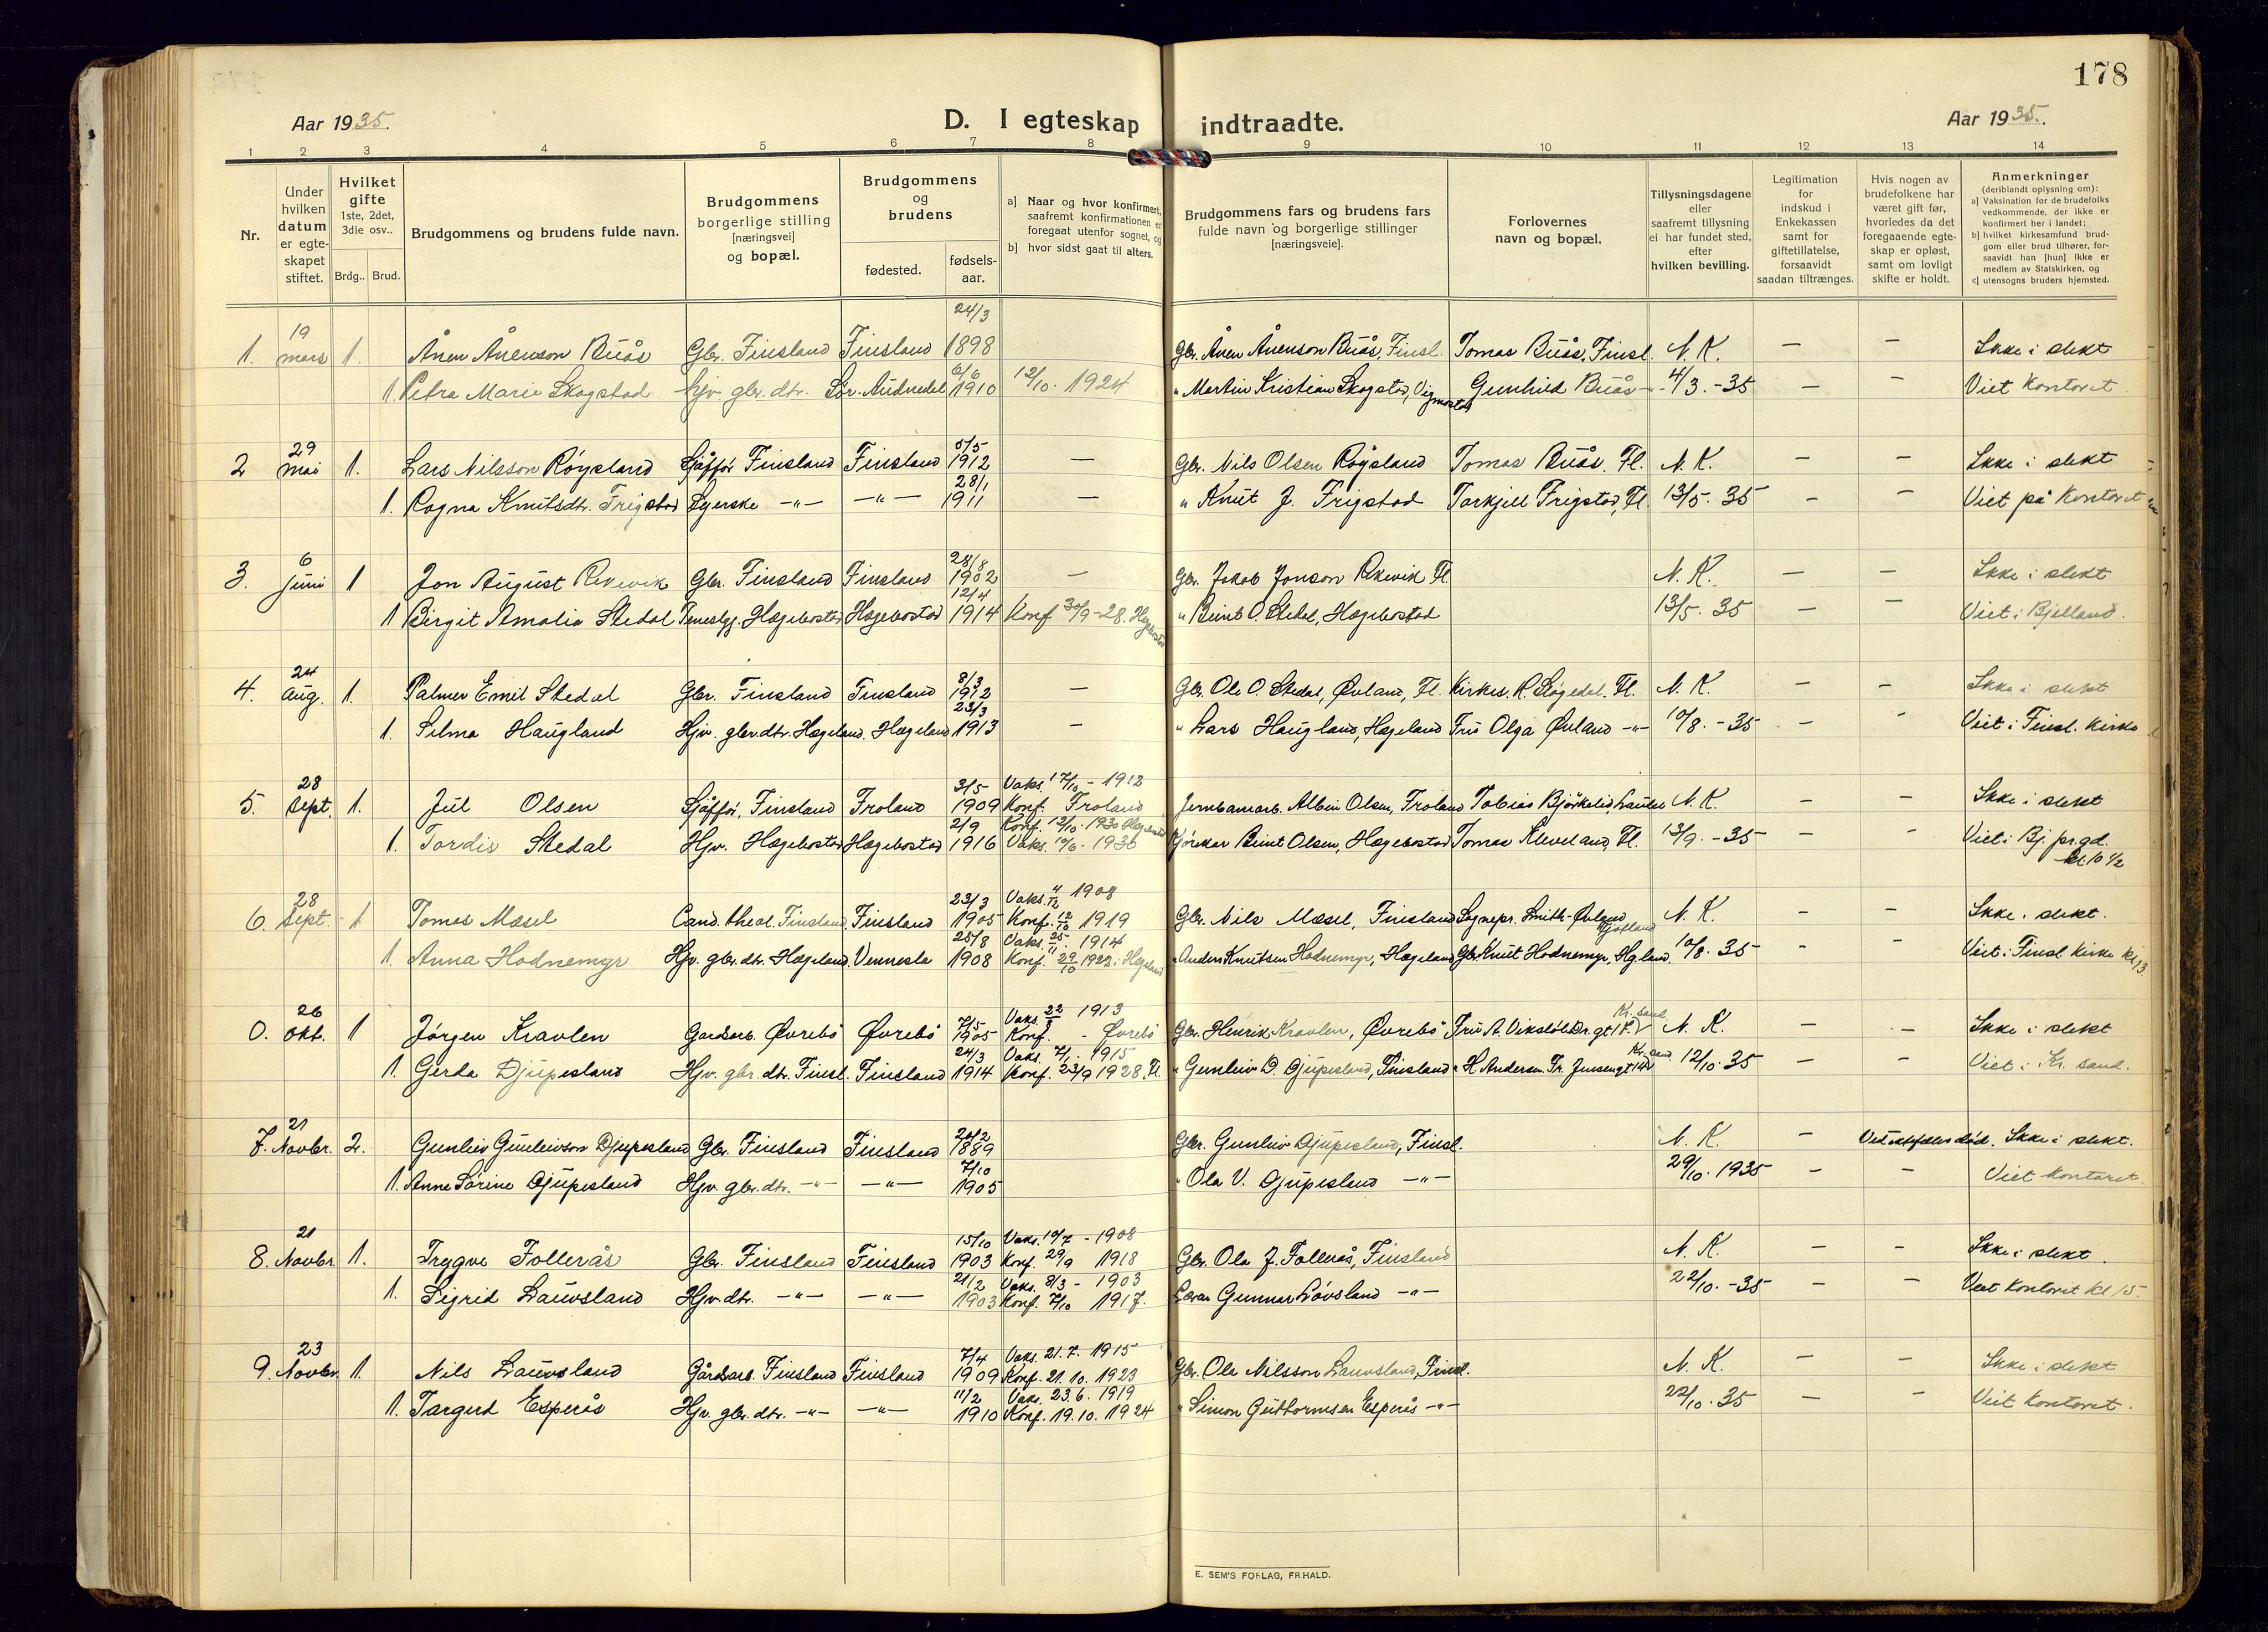 178
Aar 1935.
D. I egteskap indtraadte.
Aar 1935.
1 2 3 4 5 6 7 8 9 10 11 12 13 14
Nr.
Under hvilken datum er egteskapet stiftet.
Hvilket gifte 1ste, 2det, 3die osv..
Brdg.. Brud.
Brudgommens og brudens fulde navn.
Brudgommens borgerlige stilling [næringsvei] og bopæl.
Brudgommens og brudens
fødested. fødselsaar.
a) Naar og hvor konfirmert, saafremt konfirmationen er foregaat utenfor sognet, og
b) hvor sidst gaat til alters.
Brudgommens fars og brudens fars fulde navn og borgerlige stillinger [næringsveie].
Forlovernes navn og bopæl.
Tillysningsdagene eller saafremt tillysning ei har fundet sted, efter hvilken bevilling.
Legitimation for indskud i Enkekassen samt for giftetillatelse, forsaavidt saadan tiltrænges.
Hvis nogen av brudefolkene har været gift før, hvorledes da det foregaaende egteskap er opløst, samt om lovligt skifte er holdt.
Anmerkninger
(deriblandt oplysning om):
a) Vaksination for de brudefolks vedkommende, der ikke er konfirmert her i landet;
b) hvilket kirkesamfund brudgom eller brud tilhører, forsaavidt han [hun] ikke er medlem av Statskirken, og
c) utensogns bruders hjemsted.
1. 19 mars 1. Ånen Ånenson Buås Gbr. Finsland Finsland 24/3 1898 Gbr. Ånen Ånenson Buås, Finsl. Tomas Buås, Finsl. N. K. – – Ikke i slekt
1. Petra Marie Skogstad Hjv. gbr. dtr. Sør-Audnedal 6/6 1910 12/10. 1924 " Martin Kristian Skogstad, Vigmostad Gunhild Buås -"- 4/3.-35 – – Viet Kontoret
2 29 Mai 1. Lars Nilsson Røysland Sjåffør Finsland Finsland 5/5 1912 – Gbr. Nils Olsen Røysland Tomas Buås. Fl. N. K. – – Ikke i slekt
1. Ragna Knutsdtr. Frigstad Syerske -"- -"- 28/1 1911 – " Knut J. Frigstad Tarkjell Frigstad, Fl. 13/5. 35 – – Viet på Kontoret
3. 6 juni 1 Jon August Rekevik Gbr. Finsland Finsland 28/8 1902 – Gbr. Jakob Jonson Rkevik Fl. N. K. – – Ikke i slekt
1 Birgit Amalia Stedal Tenestgj. Hægebostad Hægebostad 12/4 1914 Konf 30/9-28. Hægebostad " Beint O. Stedal, Hægebostad 13/5. 35 – – Viet i Bjelland.
4. 24 aug. 1. Palmer Emil Stedal Gbr. Finsland Finsland 8/3 1912 – Gbr. Ole O. Stedal, Øvland, Fl. Kirkes. K. Sløgedal. Fl. N. K. – – Ikke i slekt
1. Selma Haugland Hjv. gbr. dtr. Hægeland. Hægeland 23/3 1913 – " Lars Haugland, Hægeland Fru Olga Øvland -"- 10/8.-35 – – Viet i Finsl. Kirke
5. 28 Sept. 1. Jul Olsen Sjåffør, Finsland Froland 3/5 1909 Vaks. 17/10 - 1912 Konf. Froland Jernbanearb. Albin Olsen, Froland Tobias Bjørkelid, N. K. – – Ikke i slekt
1. Tordis Stedal Hjv. Hægebostad Hægebostad 2/9 1916 Konf. 12/10. 1930 Hægebostad Vaks. 1930 Kjörekar Beint Olsen, Hægebostad Tomas Kleveland, Fl. 13/9.-35 – – Viet i Bj. pr.gd. kl 10 ½
6. 28 Sept. 1 Tomas Mæsel Cand. theol. Finsland. Finsland 23/3 1905 Vaks. 4/12 1908 Konf. 12/10 1919 Gbr. Nils Mæsel, Finsland Sognepr. Smith-Øvland Bjelland N. K. – – Ikke i slekt.
1. Anna Hodnemyr Hjv. gbr. dtr. Hægeland. Vennesla 25/8 1908 Vaks. 25/11. 1914 Konf. 29/10 1922. Hægeland " Anders Knutsen Hodnemyr, Hægeland Gbr. Knut Hodnemyr, Hg.land. 10/8. 35 – – Viet i Finsl Kirke kl 13
0. 26 Okt. 1 Jørgen Kravlen Gardsarb. Øvrebø Øvrebø 7/5 1905 Vaks. 22/9 1913 Konf. - Øvrebø Gbr. Henrik Kravlen, Øvrebø Fru A. Vikstøl Kr. Sand N. K. – – Ikke i slekt
1. Gerda Djupesland Hjv. gbr. dtr. Finsl. Finsland 24/3 1914 Vaks. 7/1. 1915 Konf. 23/9 1928. Fl. " Gunleiv D. Djupesland, Finsland " H. Andersen Fr. Jensengt 14 Kr. sand. 12/10. 35 – – Viet i Kr. sand.
7. 21 Novbr. 2. Gunleiv Gunleivson Djupesland Gbr. Finsland Finsland 1889 Gbr. Gunleiv Djupesland, Finsl. N. K. – Ved ektefelles død. Ikke i slekt.
1. Anne Sørine Djupesland Hjv. gbr. dtr. -"- -"- 7/10 1905 " Ola V. Djupesland -"- 29/10. 1935 – – Viet kontoret.
8. 21 Novbr. 1. Trygve Follerås Gbr. Finsland Finsland 15/10 1903 Vaks. 10/7 - 1908 Konf. 29/9 1918 Gbr. Ola J. Follerås, Finsland N. K. – – Ikke i slekt.
1. Sigrid Lauvsland Hjv. dtr. -"- -"- 21/2 1903 Vaks. 8/3 - 1903 Konf. 7/10 1917. Lærar Gunnar Løvsland -"- 22/10.-35 – – Viet Kontoret kl 15.
9. 23 Novbr. 1. Nils Lauvsland Gårdsarb. Finsland Finsland 7/4 1909 Vaks. 21.7. 1915 Konf. 21.10. 1923 Gbr. Ole Nilsson Lauvsland, Finsl. N. K. – – Ikke i slekt
1. Targerd Esperås Hjv. gbr. dtr. -"- -"- 11/2 1910 Vaks. 23.6. 1919 Konf. 19.10. 1924 " Simon Guttormsen Esperås -"- 22/10. 35 – – Viet kontoret.
E. SEM'S FORLAG, FR.HALD.